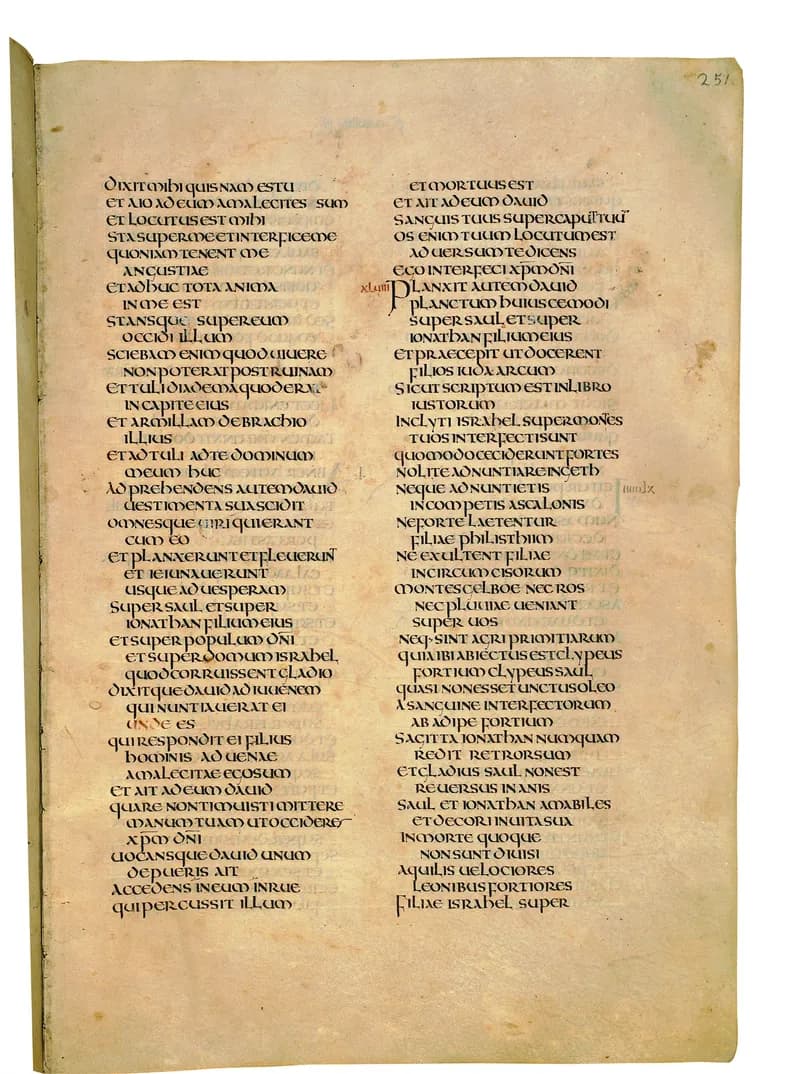 251
DIXIT MIHI QUISNAM ES TU
ET AIO AD EUM AMALECITES SUM
ET LOCUTUS EST MIHI
STA SUPER ME ET INTERFICE ME
QUONIAM TENENT ME
ANGUSTIAE
ET ADHUC TOTA ANIMA
IN ME EST
STANSQUE SUPER EUM
OCCIDI ILLUM
SCIEBAM ENIM QUOD UIUERE
NON POTERAT POST RUINAM
ET TULI DIADEMA QUOD ERAT
IN CAPITE EIUS
ET ARMILLAM DE BRACHIO
ILLIUS
ET ADTULI AD TE DOMINUM
MEUM HUC
ADPREHENDENS AUTEM DAUID
UESTIMENTA SUA SCIDIT
OMNESQUE UIRI QUI ERANT
CUM EO
ET PLANXERUNT ET FLEUERUNT
ET IEIUNAUERUNT
USQUE AD UESPERAM
SUPER SAUL ET SUPER
IONATHAN FILIUM EIUS
ET SUPER POPULUM DN̄I
ET SUPER DOMUM ISRAHEL
QUOD CORRUISSENT GLADIO
DIXITQUE DAUID AD IUUENEM
QUI NUNTIAUERAT EI
UNDE ES
QUI RESPONDIT EI FILIUS
HOMINIS ADUENAE
AMALECITAE EGO SUM
ET AIT AD EUM DAUID
QUARE NON TIMUISTI MITTERE
MANUM TUAM UT OCCIDERES
XP̄M DN̄I
UOCANSQUE DAUID UNUM
DE PUERIS AIT
ACCEDENS IN EUM INRUE
QUI PERCUSSIT ILLUM
ET MORTUUS EST
ET AIT AD EUM DAUID
SANGUIS TUUS SUPER CAPUT TUŪ
OS ENIM TUUM LOCUTUM EST
ADUERSUM TE DICENS
EGO INTERFECI XP̄M DN̄I
XLUIII PLANXIT AUTEM DAUID
PLANCTUM HUIUSCEMODI
SUPER SAUL ET SUPER
IONATHAN FILIUM EIUS
ET PRAECEPIT UT DOCERENT
FILIOS IUDA ARCUM
SICUT SCRIPTUM EST IN LIBRO
IUSTORUM
INCLYTI ISRAHEL SUPER MONTES
TUOS INTERFECTI SUNT
QUOMODO CECIDERUNT FORTES
NOLITE ADNUNTIARE IN GETH
NEQUE ADNUNTIETIS
IN COMPETIS ASCALONIS
NE FORTE LAETENTUR
FILIAE PHILISTHIIM
NE EXULTENT FILIAE
INCIRCUMCISORUM
MONTES GELBOE NEC ROS
NEC PLUUIAE UENIANT
SUPER UOS
NEQ· SINT AGRI PRIMITIARUM
QUIA IBI ABIECTUS EST CLYPEUS
FORTIUM CLYPEUS SAUL
QUASI NON ESSET UNCTUS OLEO
A SANGUINE INTERFECTORUM
AB ADIPE FORTIUM
SAGITTA IONATHAN NUMQUAM
REDIT RETRORSUM
ET GLADIUS SAUL NON EST
REUERSUS INANIS
SAUL ET IONATHAN AMABILES
ET DECORI IN UITA SUA
IN MORTE QUOQUE
NON SUNT DIUISI
AQUILIS UELOCIORES
LEONIBUS FORTIORES
FILIAE ISRAHEL SUPER